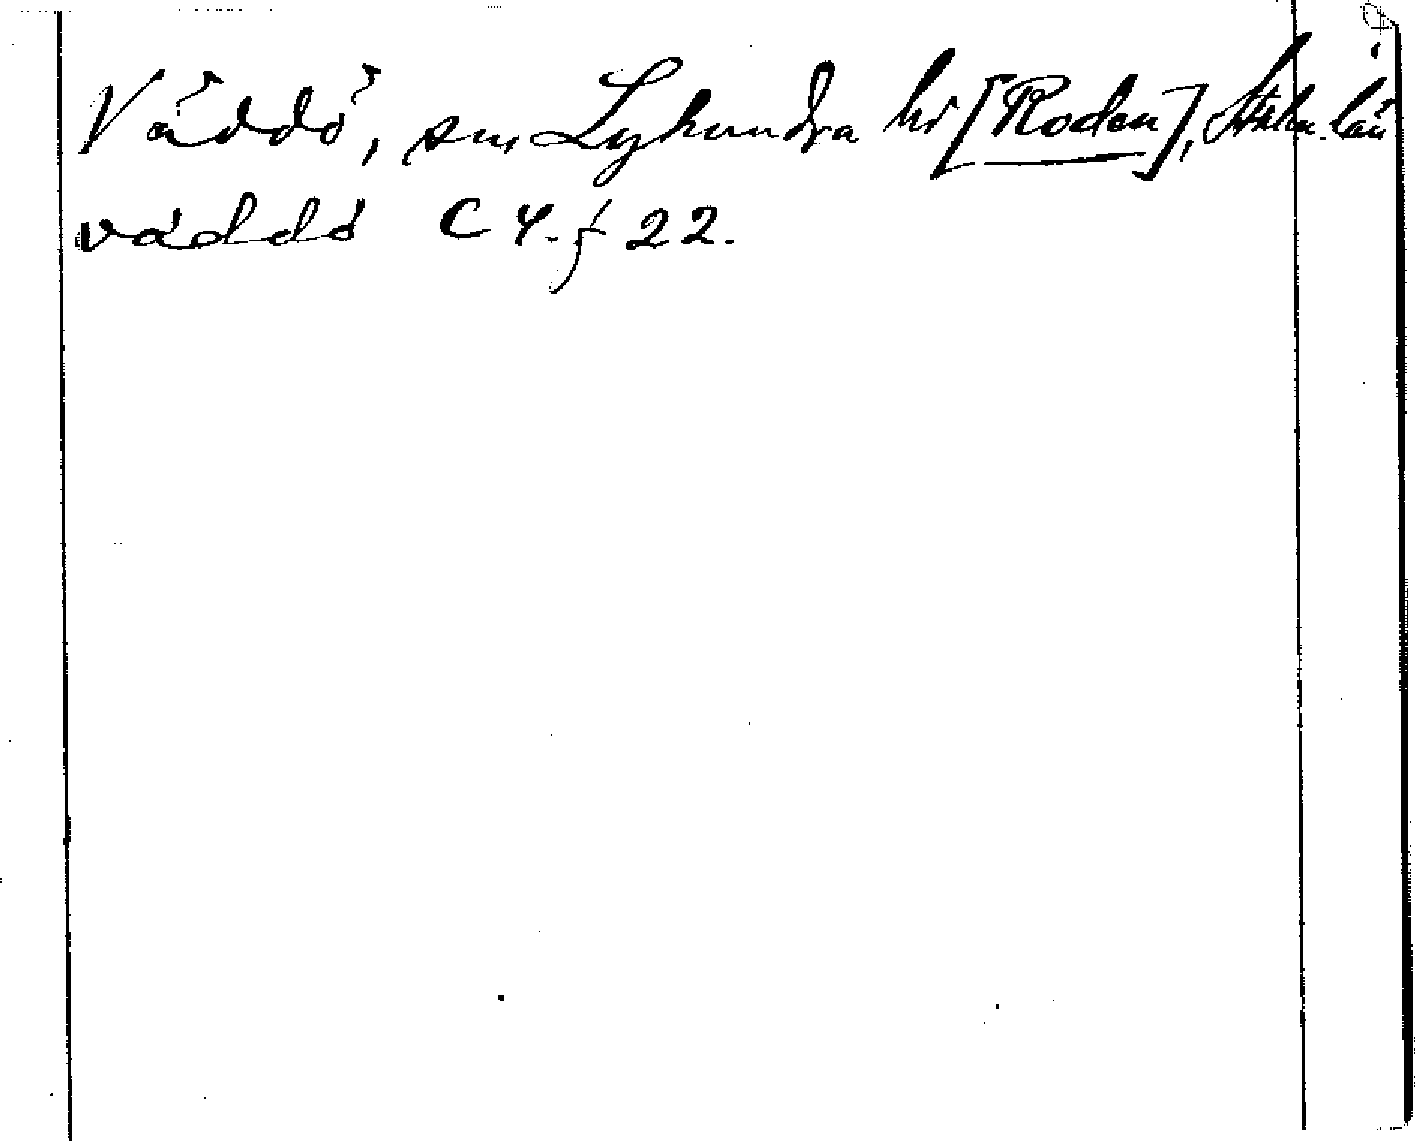 Väddö, sn, Lyhundra hd [Roden], Sthlm. län
väddö C 4. f 22.